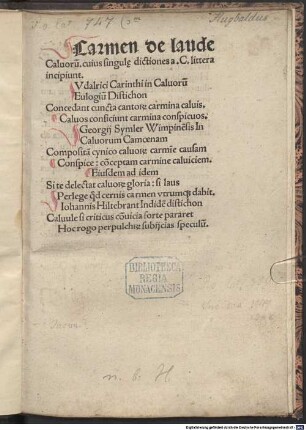 Hugbaldus
Carmen de laude
Caluorũ. cuius singule dictiones a .C. littera
incipiunt.
Vdalrici Carinthi in Caluorũ
Eulogiũ Distichon
Concedant cuncta cantorꝝ carmina caluis.
Caluos conficiunt carmina conspicuos.
Georgij Symler Wimpinẽsis In
Caluorum Camœnam
Compositã cynico caluorꝝ carmĩe causam
Conspice: cõceptam carmine caluiciem.
Eiusdem ad idem
Si te delectat caluorꝝ gloria: si laus
Perlege qđ cernis carmen vtrumqꝫ dabit.
Iohannis Hiltebrant Indidẽ distichon
Caluule si criticus cõuicia forte pararet
Hoc rogo perpulchrꝫ subijcias speculũ.
BIBLIOTHECA
REGIA
MONACENSIS